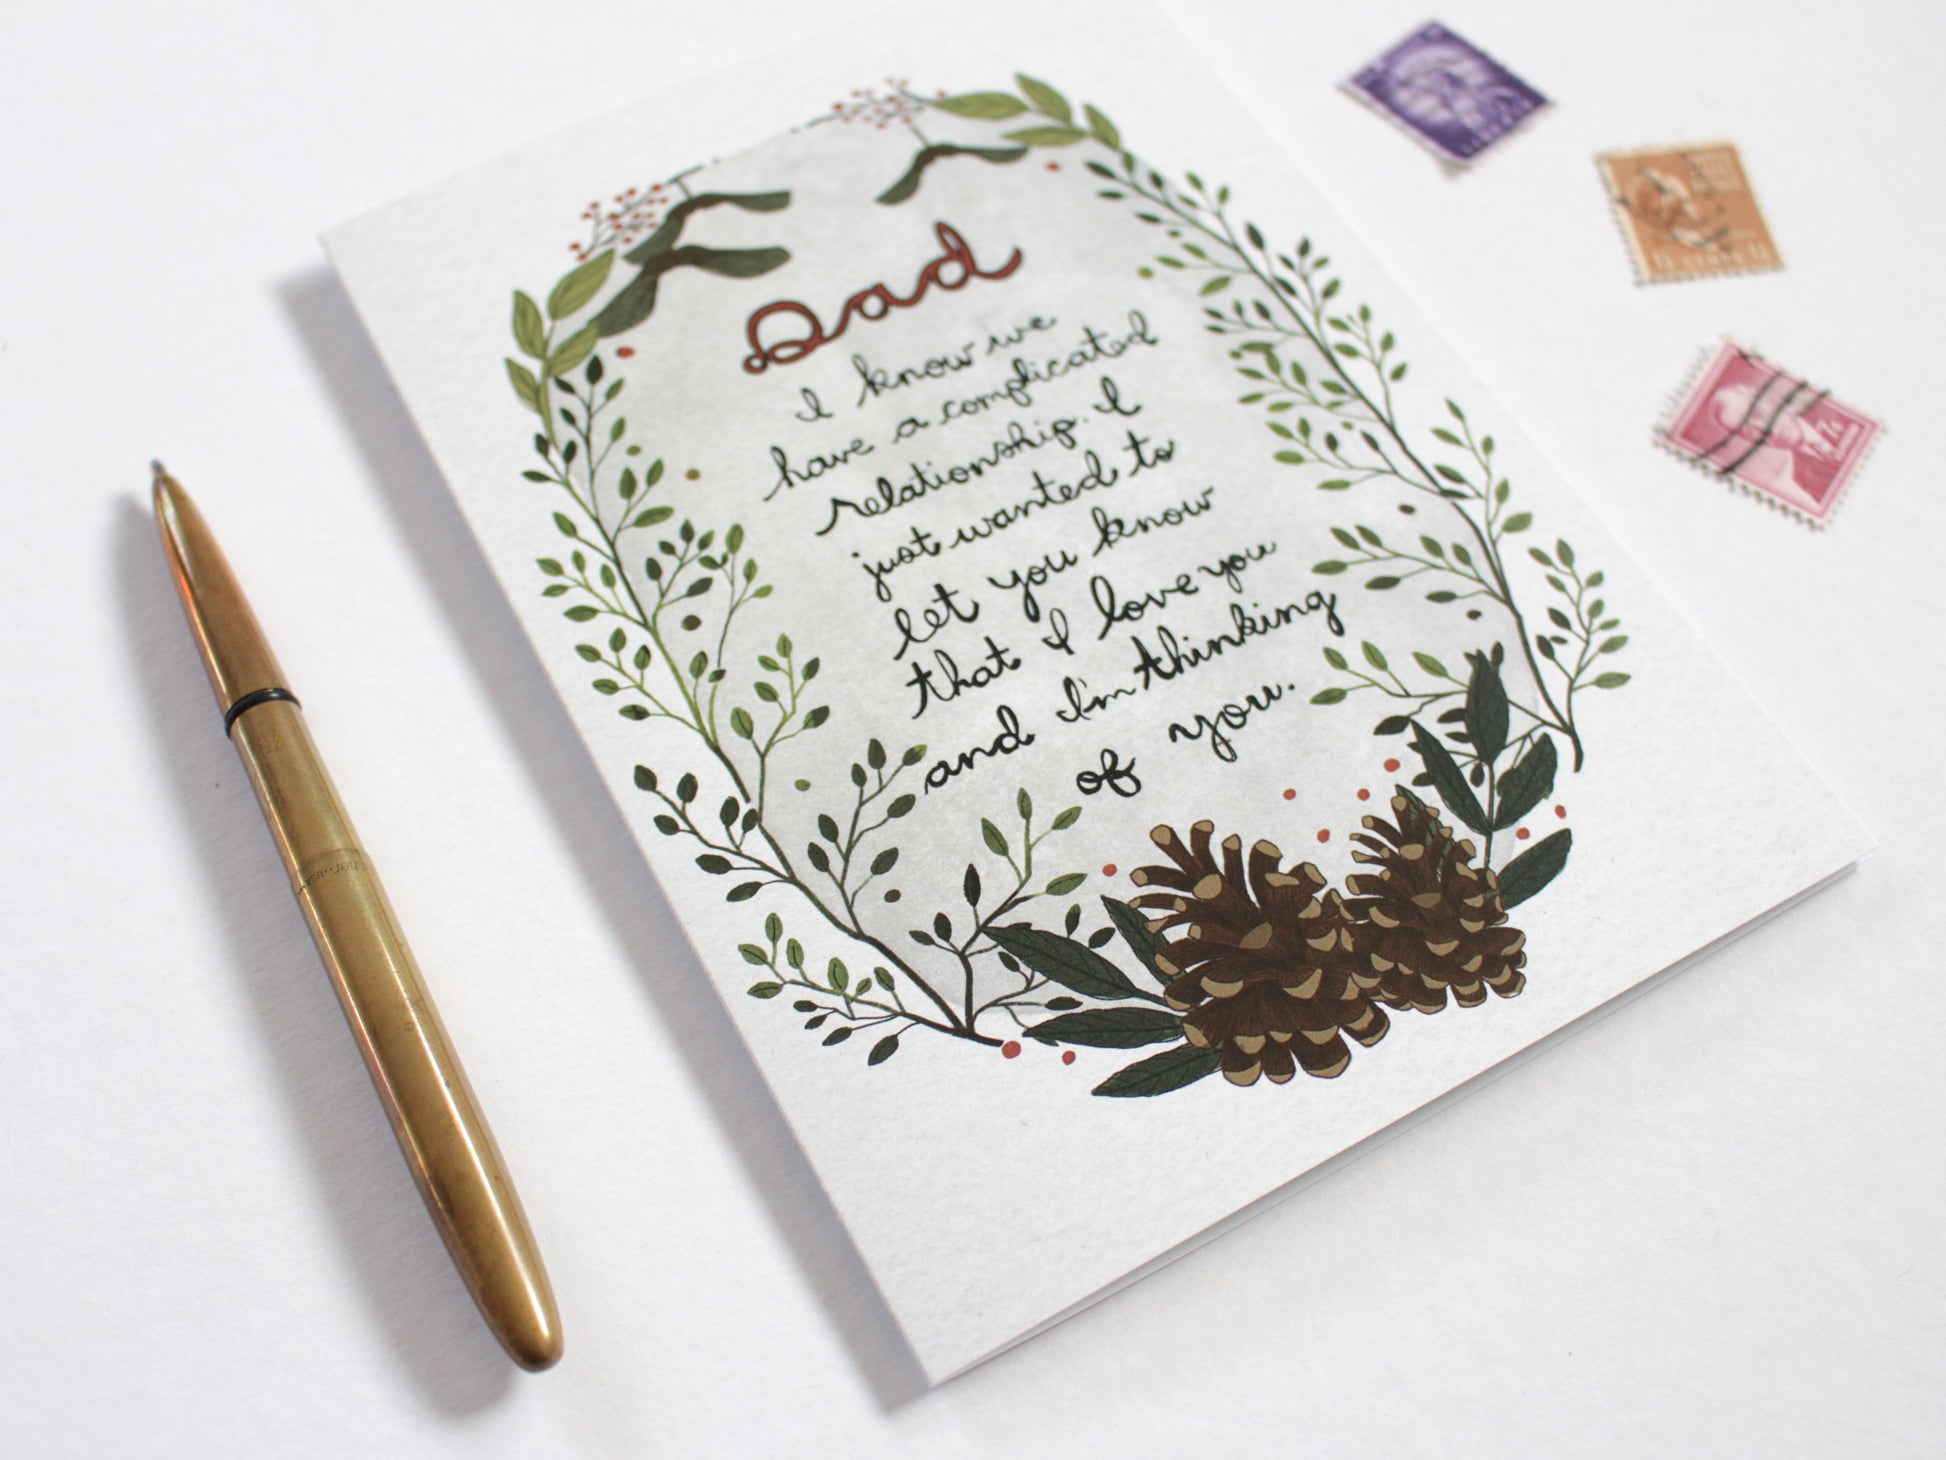 Dad
I know we
have a complicated
relationship. I
just wanted to
let you know
that I love you
and I'm thinking
of you.
1½ CENTS 1½